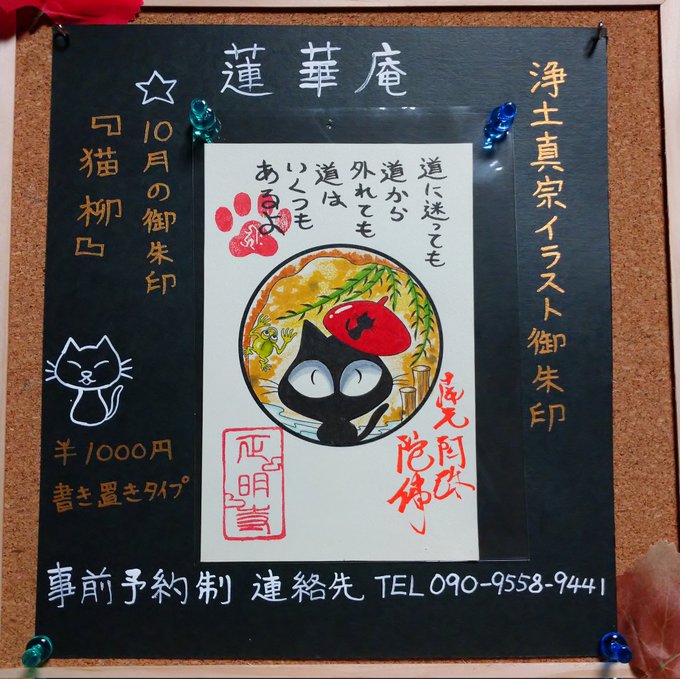 蓮華庵
浄土真宗イラスト御朱印
☆10月の御朱印
『猫柳』
道に迷っても
道から
外れても
道は
いくつも
あるよ
阿弥
陀佛
正明寺
¥1000円
書き置きタイプ
事前予約制 連絡先 TEL 090-9558-9441